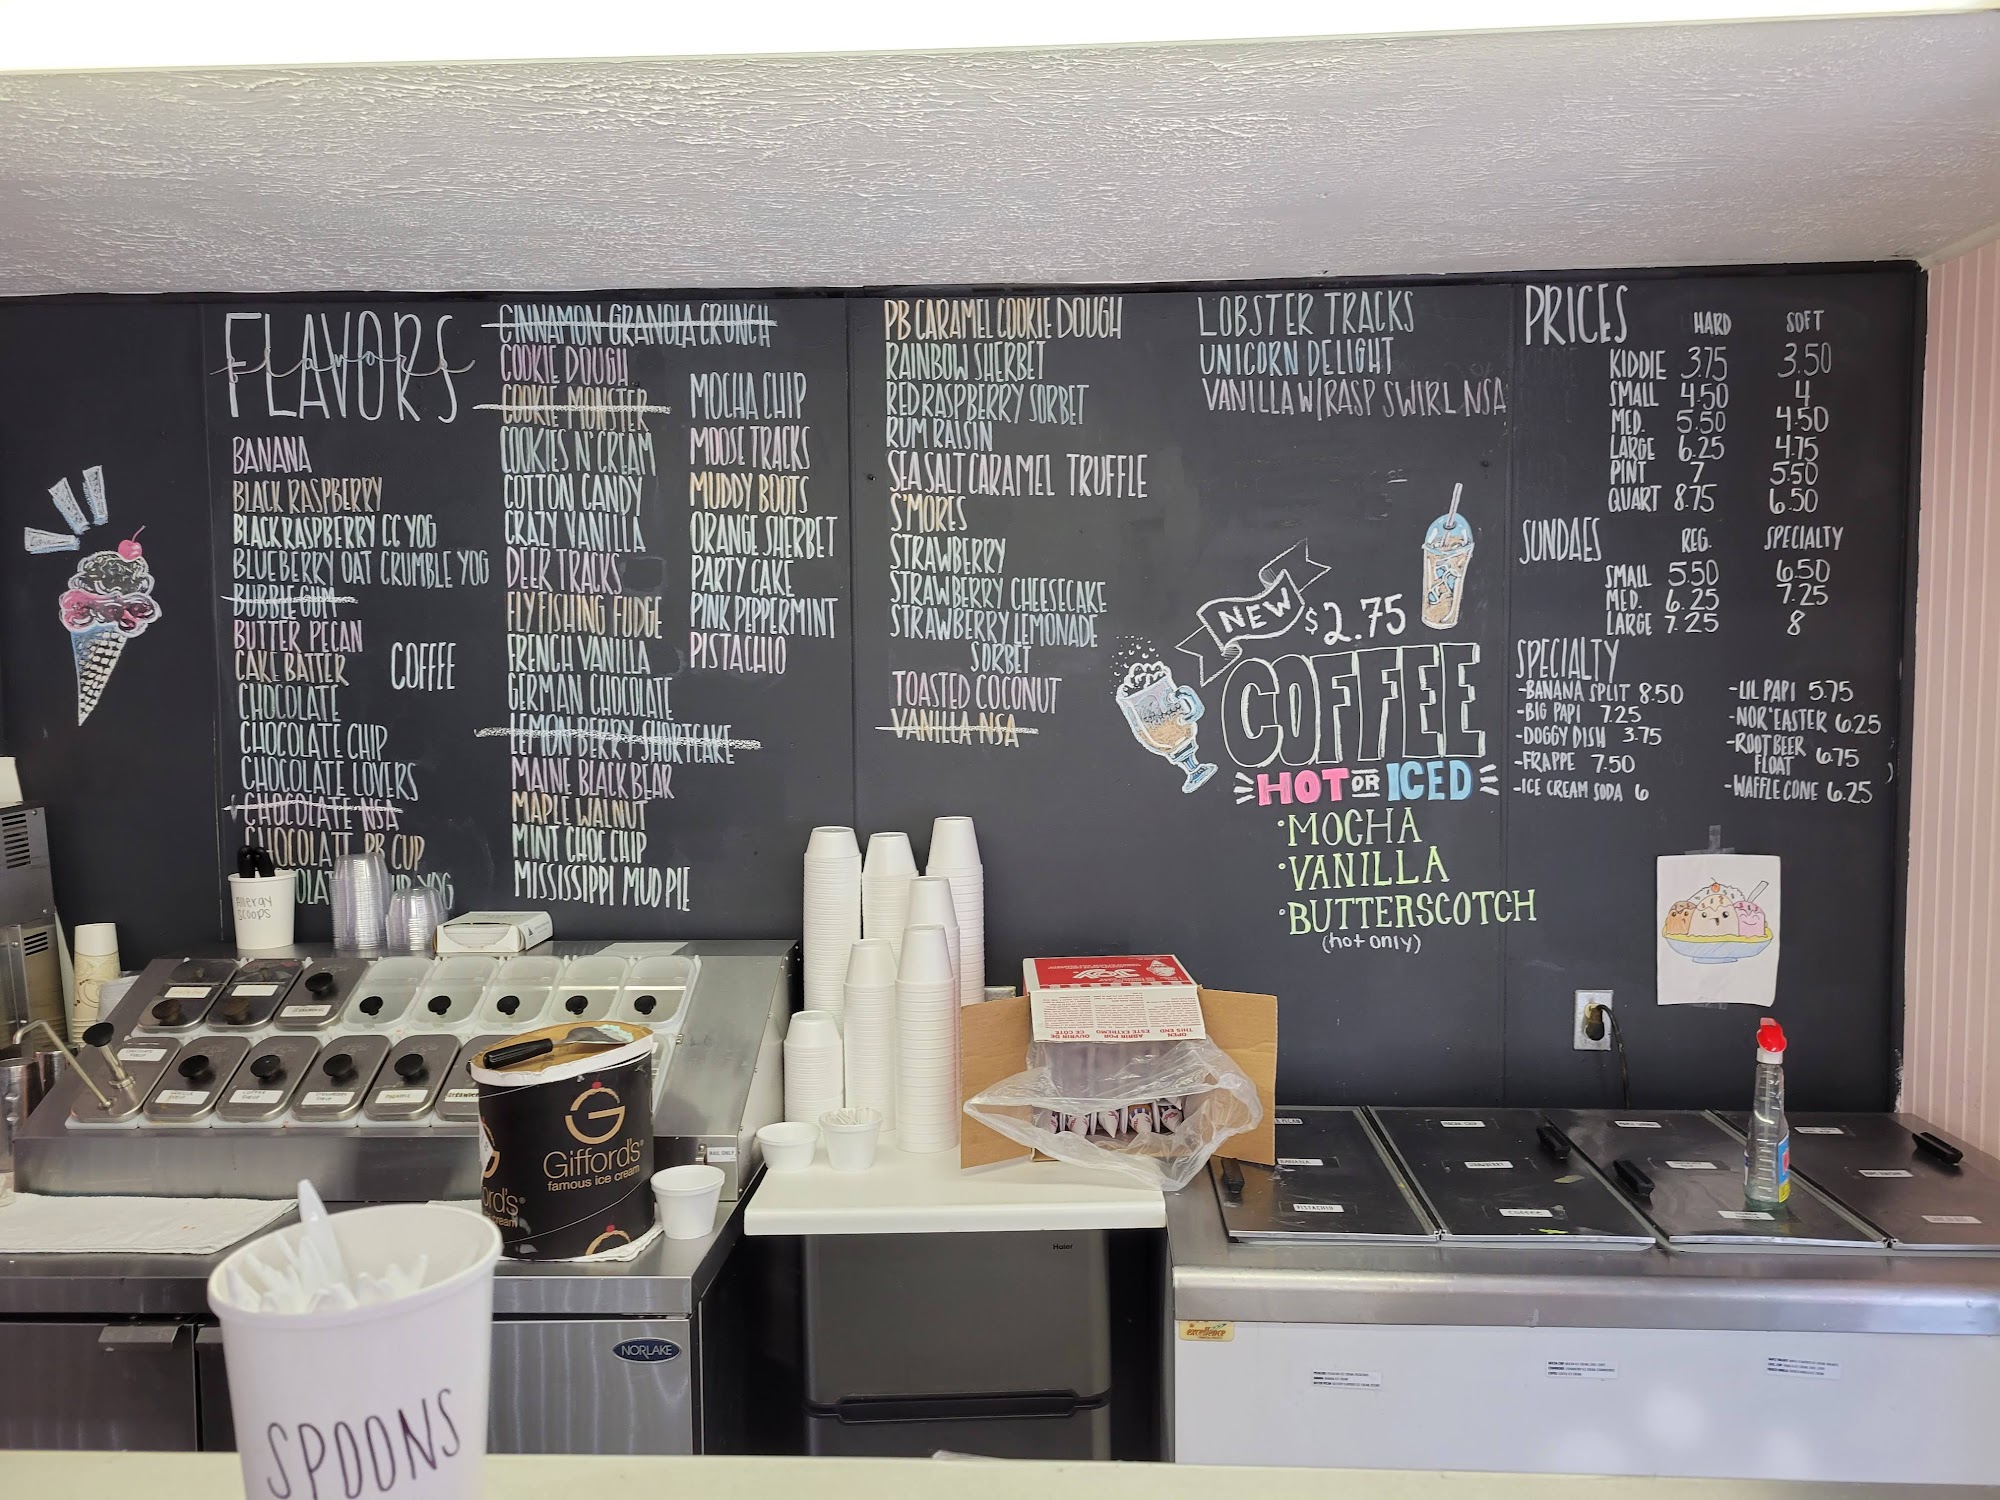 FLAVORS
flavors
BANANA
BLACK RASPBERRY
BLACK RASPBERRY CC YOG
BLUEBERRY OAT CRUMBLE YOG
BUBBLE GUM
BUTTER PECAN
CAKE BATTER
CHOCOLATE
CHOCOLATE CHIP
CHOCOLATE LOVERS
CHOCOLATE NSA
CHOCOLATE PB CUP
YOG
COFFEE
CINNAMON GRANOLA CRUNCH
COOKIE DOUGH
COOKIE MONSTER
COOKIES N' CREAM
COTTON CANDY
CRAZY VANILLA
DEER TRACKS
FLY FISHING FUDGE
FRENCH VANILLA
GERMAN CHOCOLATE
LEMON BERRY SHORTCAKE
MAINE BLACK BEAR
MAPLE WALNUT
MINT CHOC CHIP
MISSISSIPPI MUD PIE
MOCHA CHIP
MOOSE TRACKS
MUDDY BOOTS
ORANGE SHERBET
PARTY CAKE
PINK PEPPERMINT
PISTACHIO
PB CARAMEL COOKIE DOUGH
RAINBOW SHERBET
RED RASPBERRY SORBET
RUM RAISIN
SEA SALT CARAMEL TRUFFLE
S'MORES
STRAWBERRY
STRAWBERRY CHEESECAKE
STRAWBERRY LEMONADE
SORBET
TOASTED COCONUT
VANILLA NSA
LOBSTER TRACKS
UNICORN DELIGHT
VANILLA W/RASP SWIRL NSA
NEW $2.75
COFFEE
HOT OR ICED
•MOCHA
•VANILLA
•BUTTERSCOTCH
(hot only)
PRICES HARD SOFT
KIDDIE 3.75 3.50
SMALL 4.50 4
MED. 5.50 4.50
LARGE 6.25 4.75
PINT 7 5.50
QUART 8.75 6.50
SUNDAES REG. SPECIALTY
SMALL 5.50 6.50
MED. 6.25 7.25
LARGE 7.25 8
SPECIALTY
-BANANA SPLIT 8.50
-BIG PAPI 7.25
-DOGGY DISH 3.75
-FRAPPE 7.50
-ICE CREAM SODA 6
-LIL PAPI 5.75
-NOR'EASTER 6.25
-ROOT BEER FLOAT 6.75
-WAFFLE CONE 6.25
Allergy
SCOOPS
JOY
OPEN ABRIR POR OUVRIR DE
THIS END ESTE EXTREMO CE CÔTÉ
G
Gifford's
famous ice cream
Haier
NORLAKE
BANANA
PISTACHIO
COFFEE
excellence
SPOONS